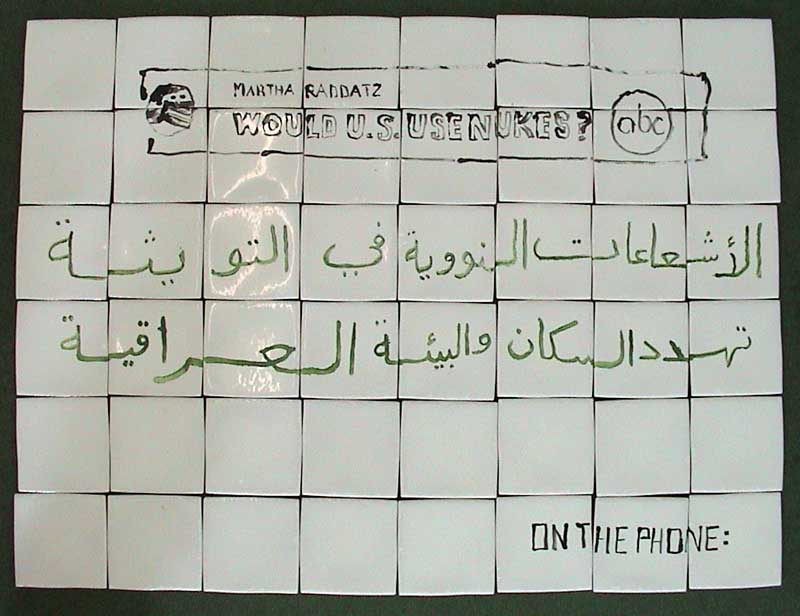 MARTHA RADDATZ
WOULD U.S. USE NUKES?
abc
الأشعاعات النووية في التويثة
تهدد السكان والبيئة العراقية
ON THE PHONE: